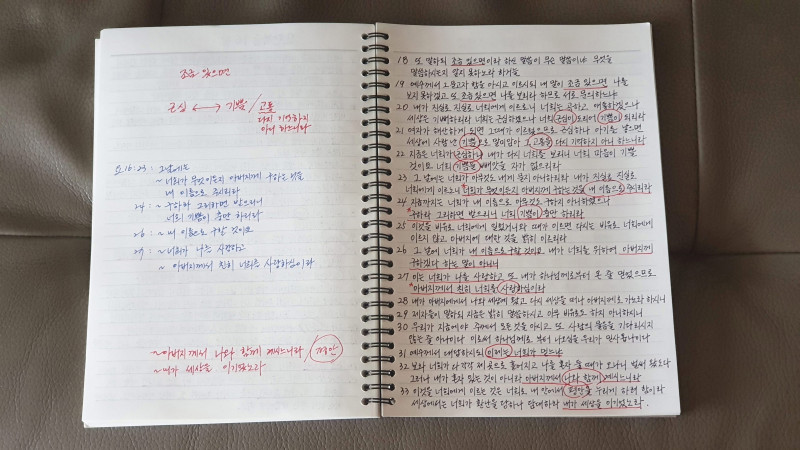 조금 있으면
근심 ↔ 기쁨 / 고통
다시 기억하지
아니 하느니라
요 16:23 : 그날에는
~ 너희가 무엇이든지 아버지께 구하는 것을
내 이름으로 주시리라
24 : ~ 구하라 그리하면 받으리니
너희 기쁨이 충만 하리라
26 : ~ 내 이름으로 구할 것이요
27 : ~ 너희가 나를 사랑하고
~ 아버지께서 친히 너희를 사랑하심이라
~ 아버지께서 나와 함께 계시느니라 / 평안
~ 내가 세상을 이기었노라
18 또 말하되 조금 있으면이라 하신 말씀이 무슨 말씀이냐 무엇을
말씀하시는지 알지 못하노라 하거늘
19 예수께서 그 묻고자 함을 아시고 이르시되 내 말이 조금 있으면 나를
보지 못하겠고 또 조금 있으면 나를 보리라 하므로 서로 문의하느냐
20 내가 진실로 진실로 너희에게 이르노니 너희는 곡하고 애통하겠으나
세상은 기뻐하리라 너희는 근심하겠으나 너희 근심이 도리어 기쁨이 되리라
21 여자가 해산하게 되면 그때가 이르렀으므로 근심하나 아기를 낳으면
세상에 사람 난 기쁨으로 말미암아 그 고통을 다시 기억하지 아니 하느니라
22 지금은 너희가 근심하나 내가 다시 너희를 보리니 너희 마음이 기쁠
것이요 너희 기쁨을 빼앗을 자가 없으리라
23 그 날에는 너희가 아무것도 내게 묻지 아니하리라 내가 진실로 진실로
너희에게 이르노니 너희가 무엇이든지 아버지께 구하는 것을 내 이름으로 주시리라
24 지금까지는 너희가 내 이름으로 아무것도 구하지 아니하였으나
구하라 그리하면 받으리니 너희 기쁨이 충만 하리라
25 이것을 비유로 너희에게 일렀거니와 때가 이르면 다시는 비유로 너희에게
이르지 않고 아버지에 대한 것을 밝히 이르리라
26 그 날에 너희가 내 이름으로 구할 것이요 내가 너희를 위하여 아버지께
구하겠다 하는 말이 아니니
27 이는 너희가 나를 사랑하고 또 내가 하나님께로부터 온 줄 믿었으므로
아버지께서 친히 너희를 사랑하심이라
28 내가 아버지에게서 나와 세상에 왔고 다시 세상을 떠나 아버지께로 가노라 하시니
29 제자들이 말하되 지금은 밝히 말씀하시고 아무 비유로도 하지 아니하시니
30 우리가 지금에야 주께서 모든 것을 아시고 또 사람의 물음을 기다리시지
않는 줄 아나이다 이로써 하나님께로 부터 나오심을 우리가 믿사옵나이다
31 예수께서 대답하시되 이제는 너희가 믿느냐
32 보라 너희가 다 각각 제 곳으로 흩어지고 나를 혼자 둘 때가 오나니 벌써 왔도다
그러나 내가 혼자 있는 것이 아니라 아버지께서 나와 함께 계시느니라
33 이것을 너희에게 이르는 것은 너희로 내 안에서 평안을 누리게 하려 함이라
세상에서는 너희가 환난을 당하나 담대하라 내가 세상을 이기었노라.